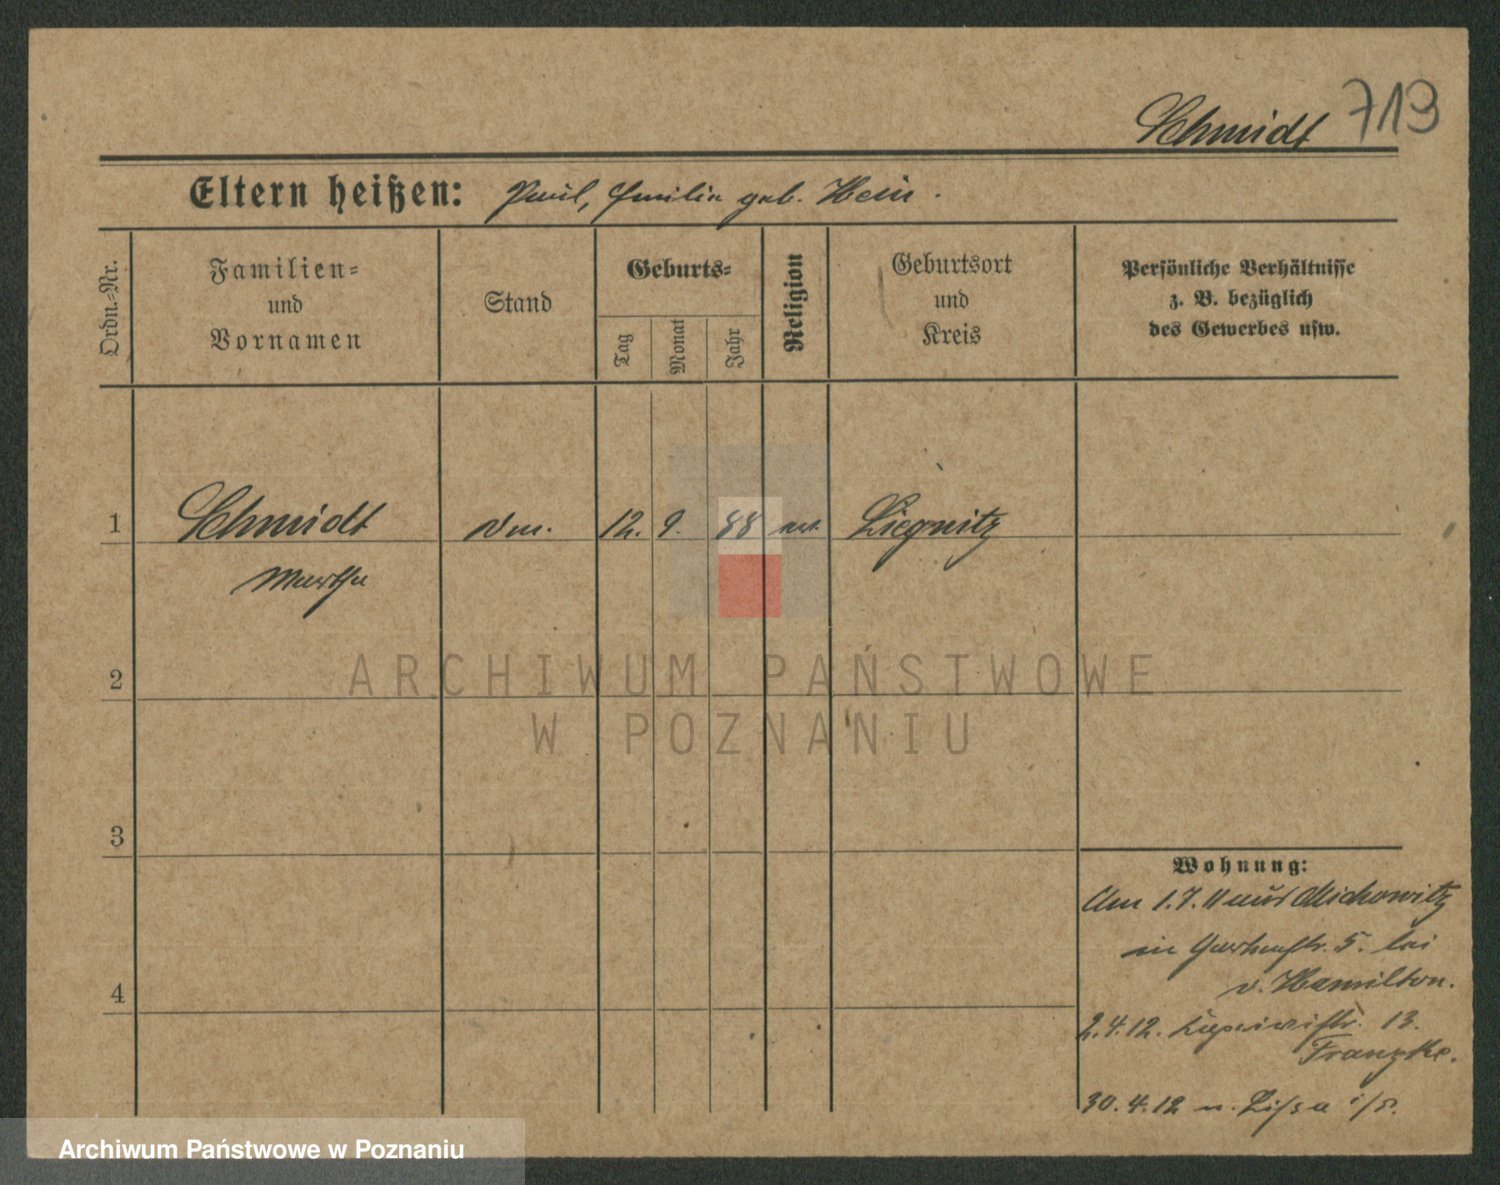 Schmidt 719
Eltern heißen: Paul, Emilie geb. Hein.
Ordn.-Nr.
Familien-
und
Vornamen
Stand
Geburts-
Tag
Monat
Jahr
Religion
Geburtsort
und
Kreis
Persönliche Verhältnisse
z. B. bezüglich
des Gewerbes usw.
1 Schmidt 12. 9. 88 Liegnitz
Martha
2
3
4
Wohnung:
Am 1.7.11 aus Michowitz
in Gartenstr. 5. bei
v. Hamilton.
2.4.12. 13.
Franzke.
30.4.12 n. Lissa i/P.
ARCHIWUM PAŃSTWOWE
W POZNANIU
Archiwum Państwowe w Poznaniu